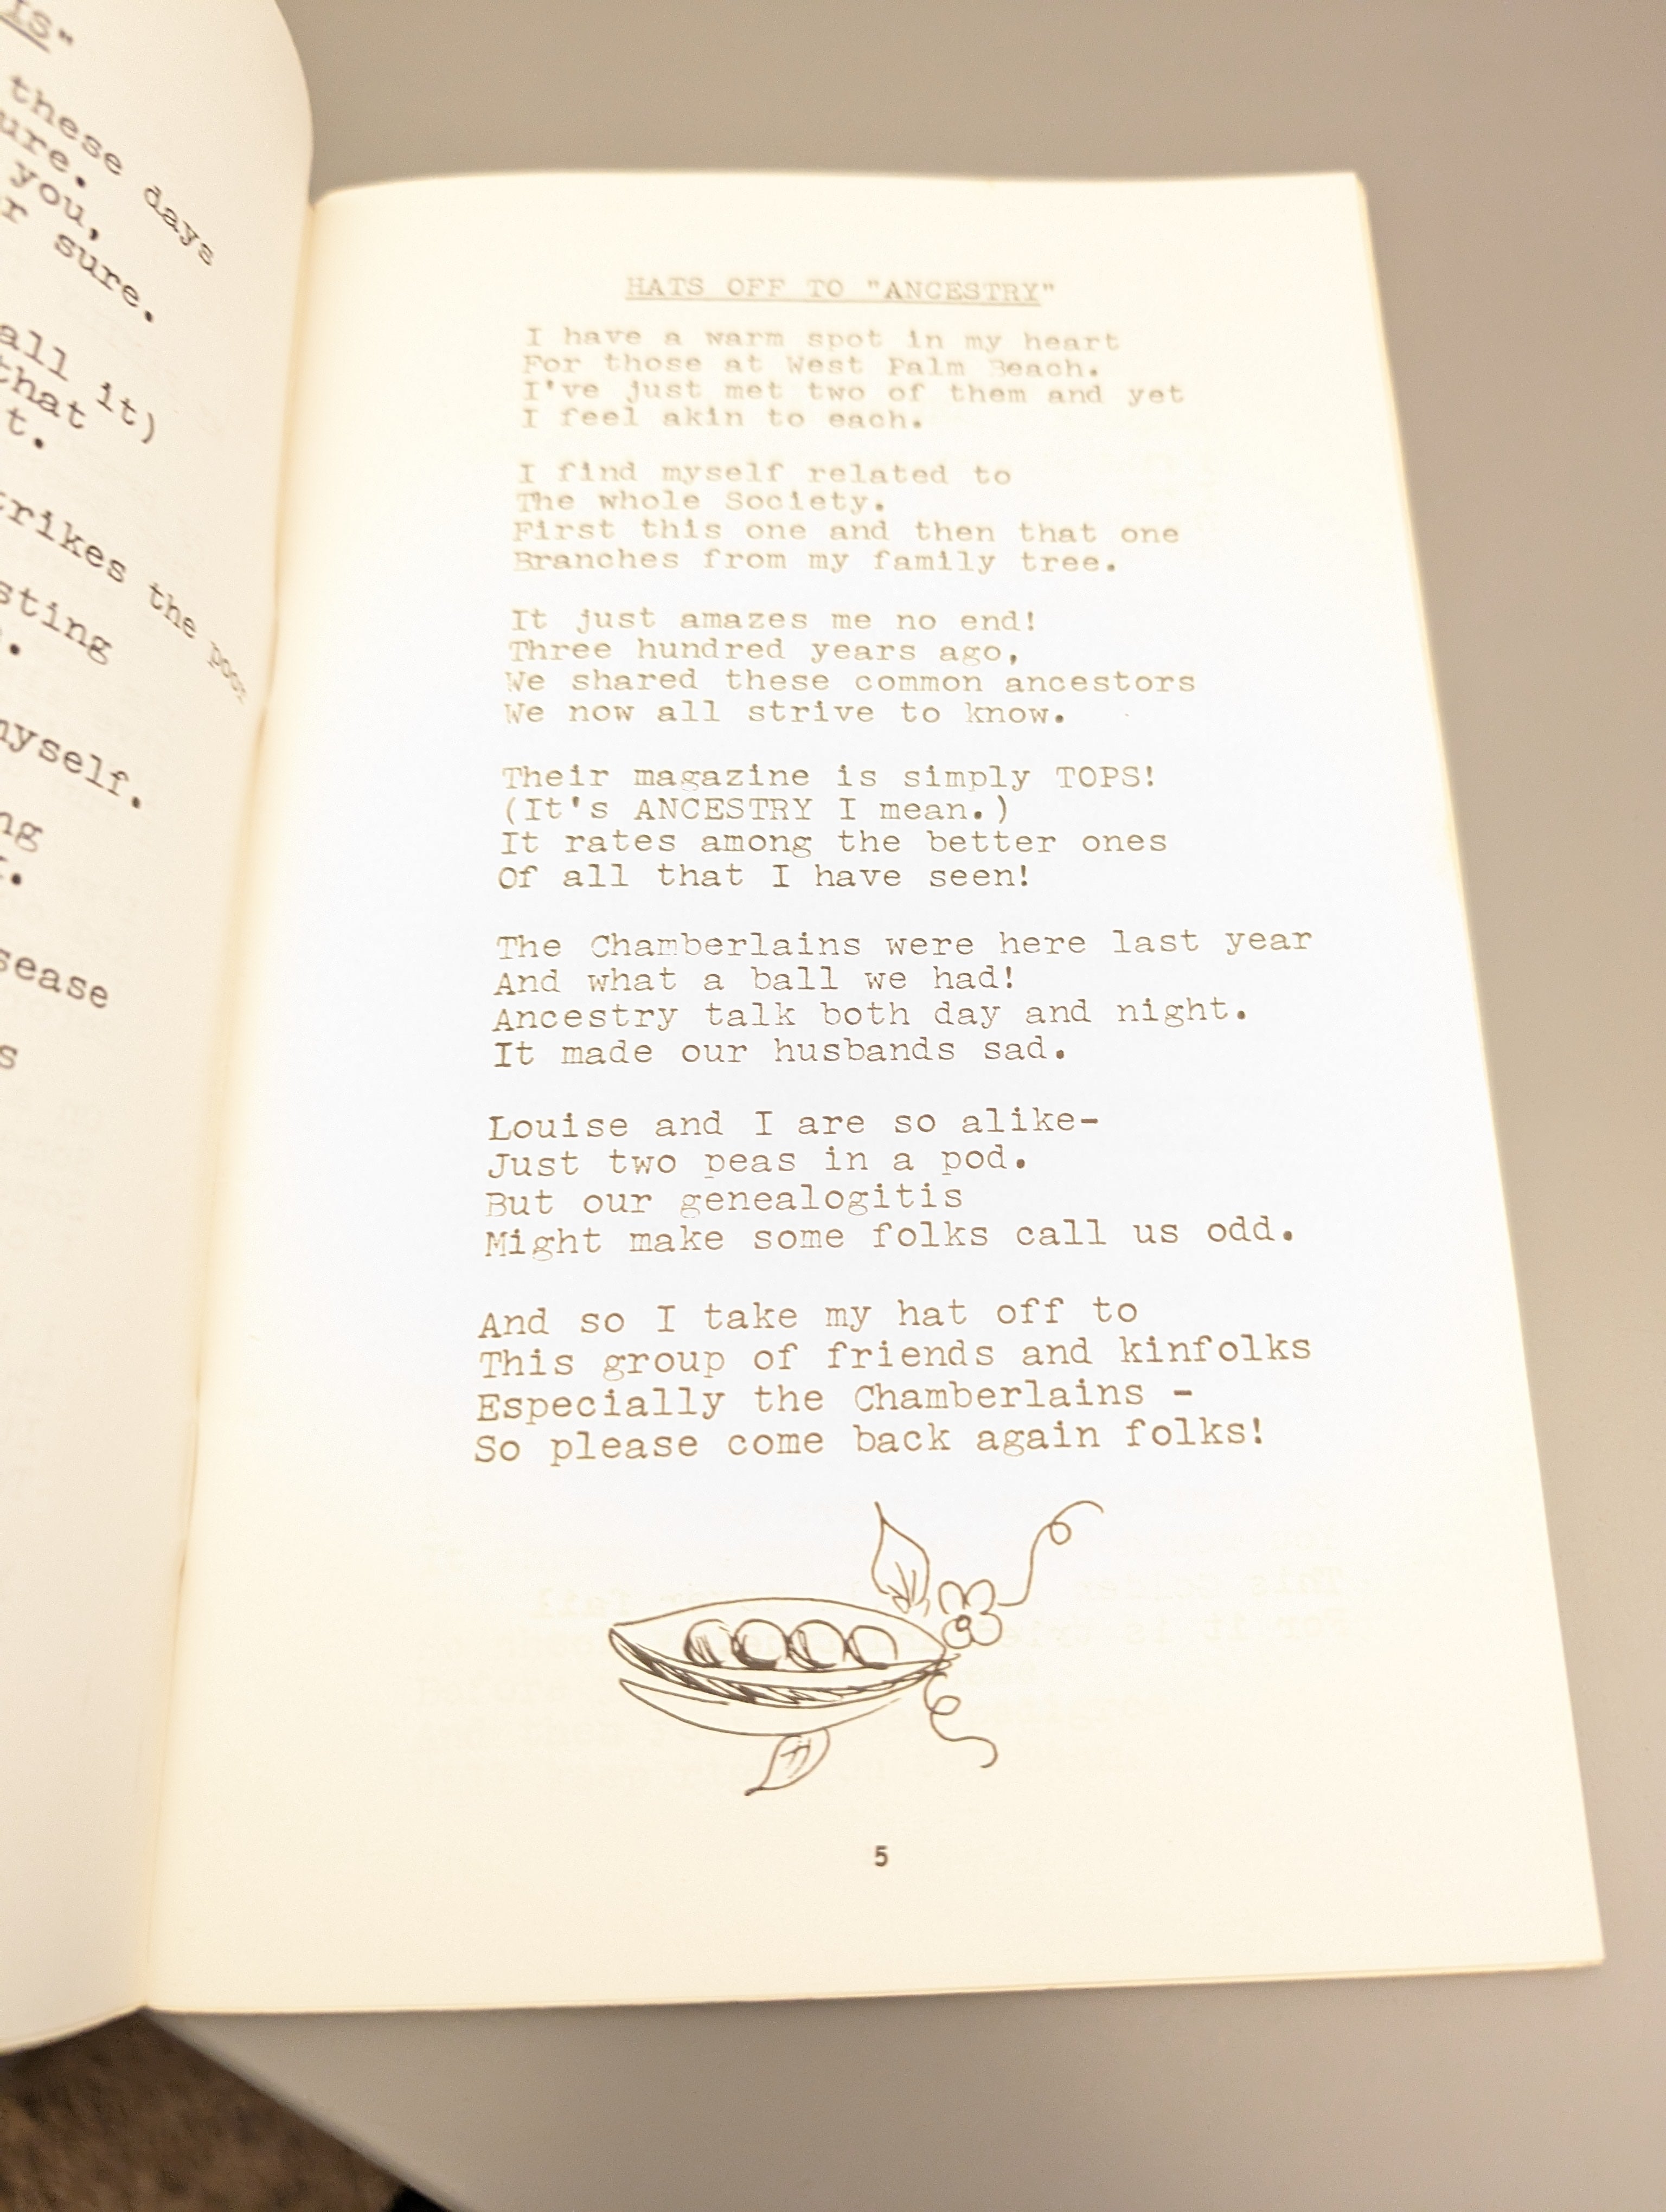 IS"
these days
ure.
you,
r sure.
all it)
that
t.
trikes the poor
sting
myself.
ng
sease
s
HATS OFF TO "ANCESTRY"
I have a warm spot in my heart
For those at West Palm Beach.
I've just met two of them and yet
I feel akin to each.
I find myself related to
The whole Society.
First this one and then that one
Branches from my family tree.
It just amazes me no end!
Three hundred years ago,
We shared these common ancestors
We now all strive to know.
Their magazine is simply TOPS!
(It's ANCESTRY I mean.)
It rates among the better ones
Of all that I have seen!
The Chamberlains were here last year
And what a ball we had!
Ancestry talk both day and night.
It made our husbands sad.
Louise and I are so alike-
Just two peas in a pod.
But our genealogitis
Might make some folks call us odd.
And so I take my hat off to
This group of friends and kinfolks
Especially the Chamberlains -
So please come back again folks!
5